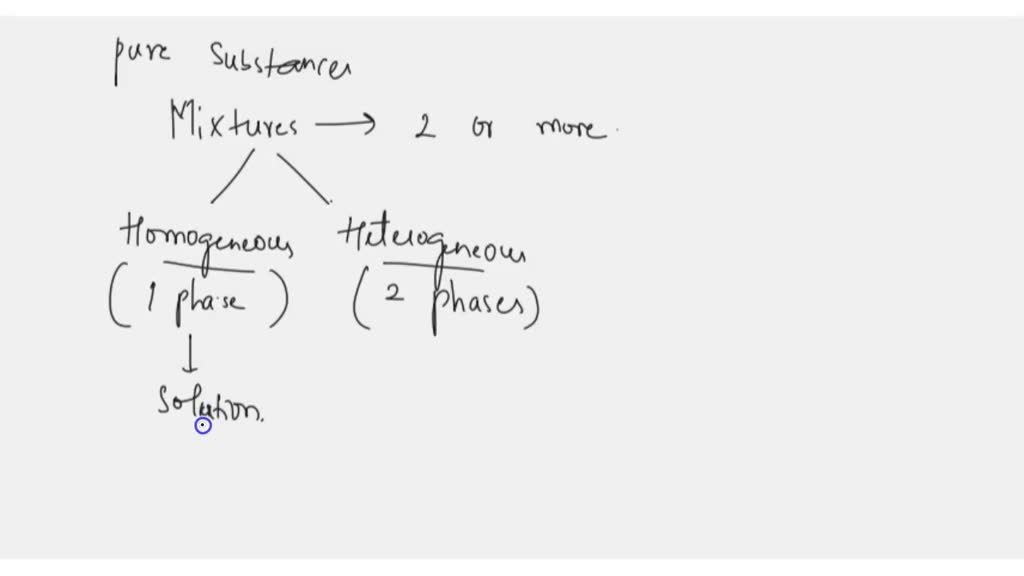 pure Substances
Mixtures → 2 or more.
Homogeneous Heterogeneous
(1 phase) (2 phases)
↓
Solution.